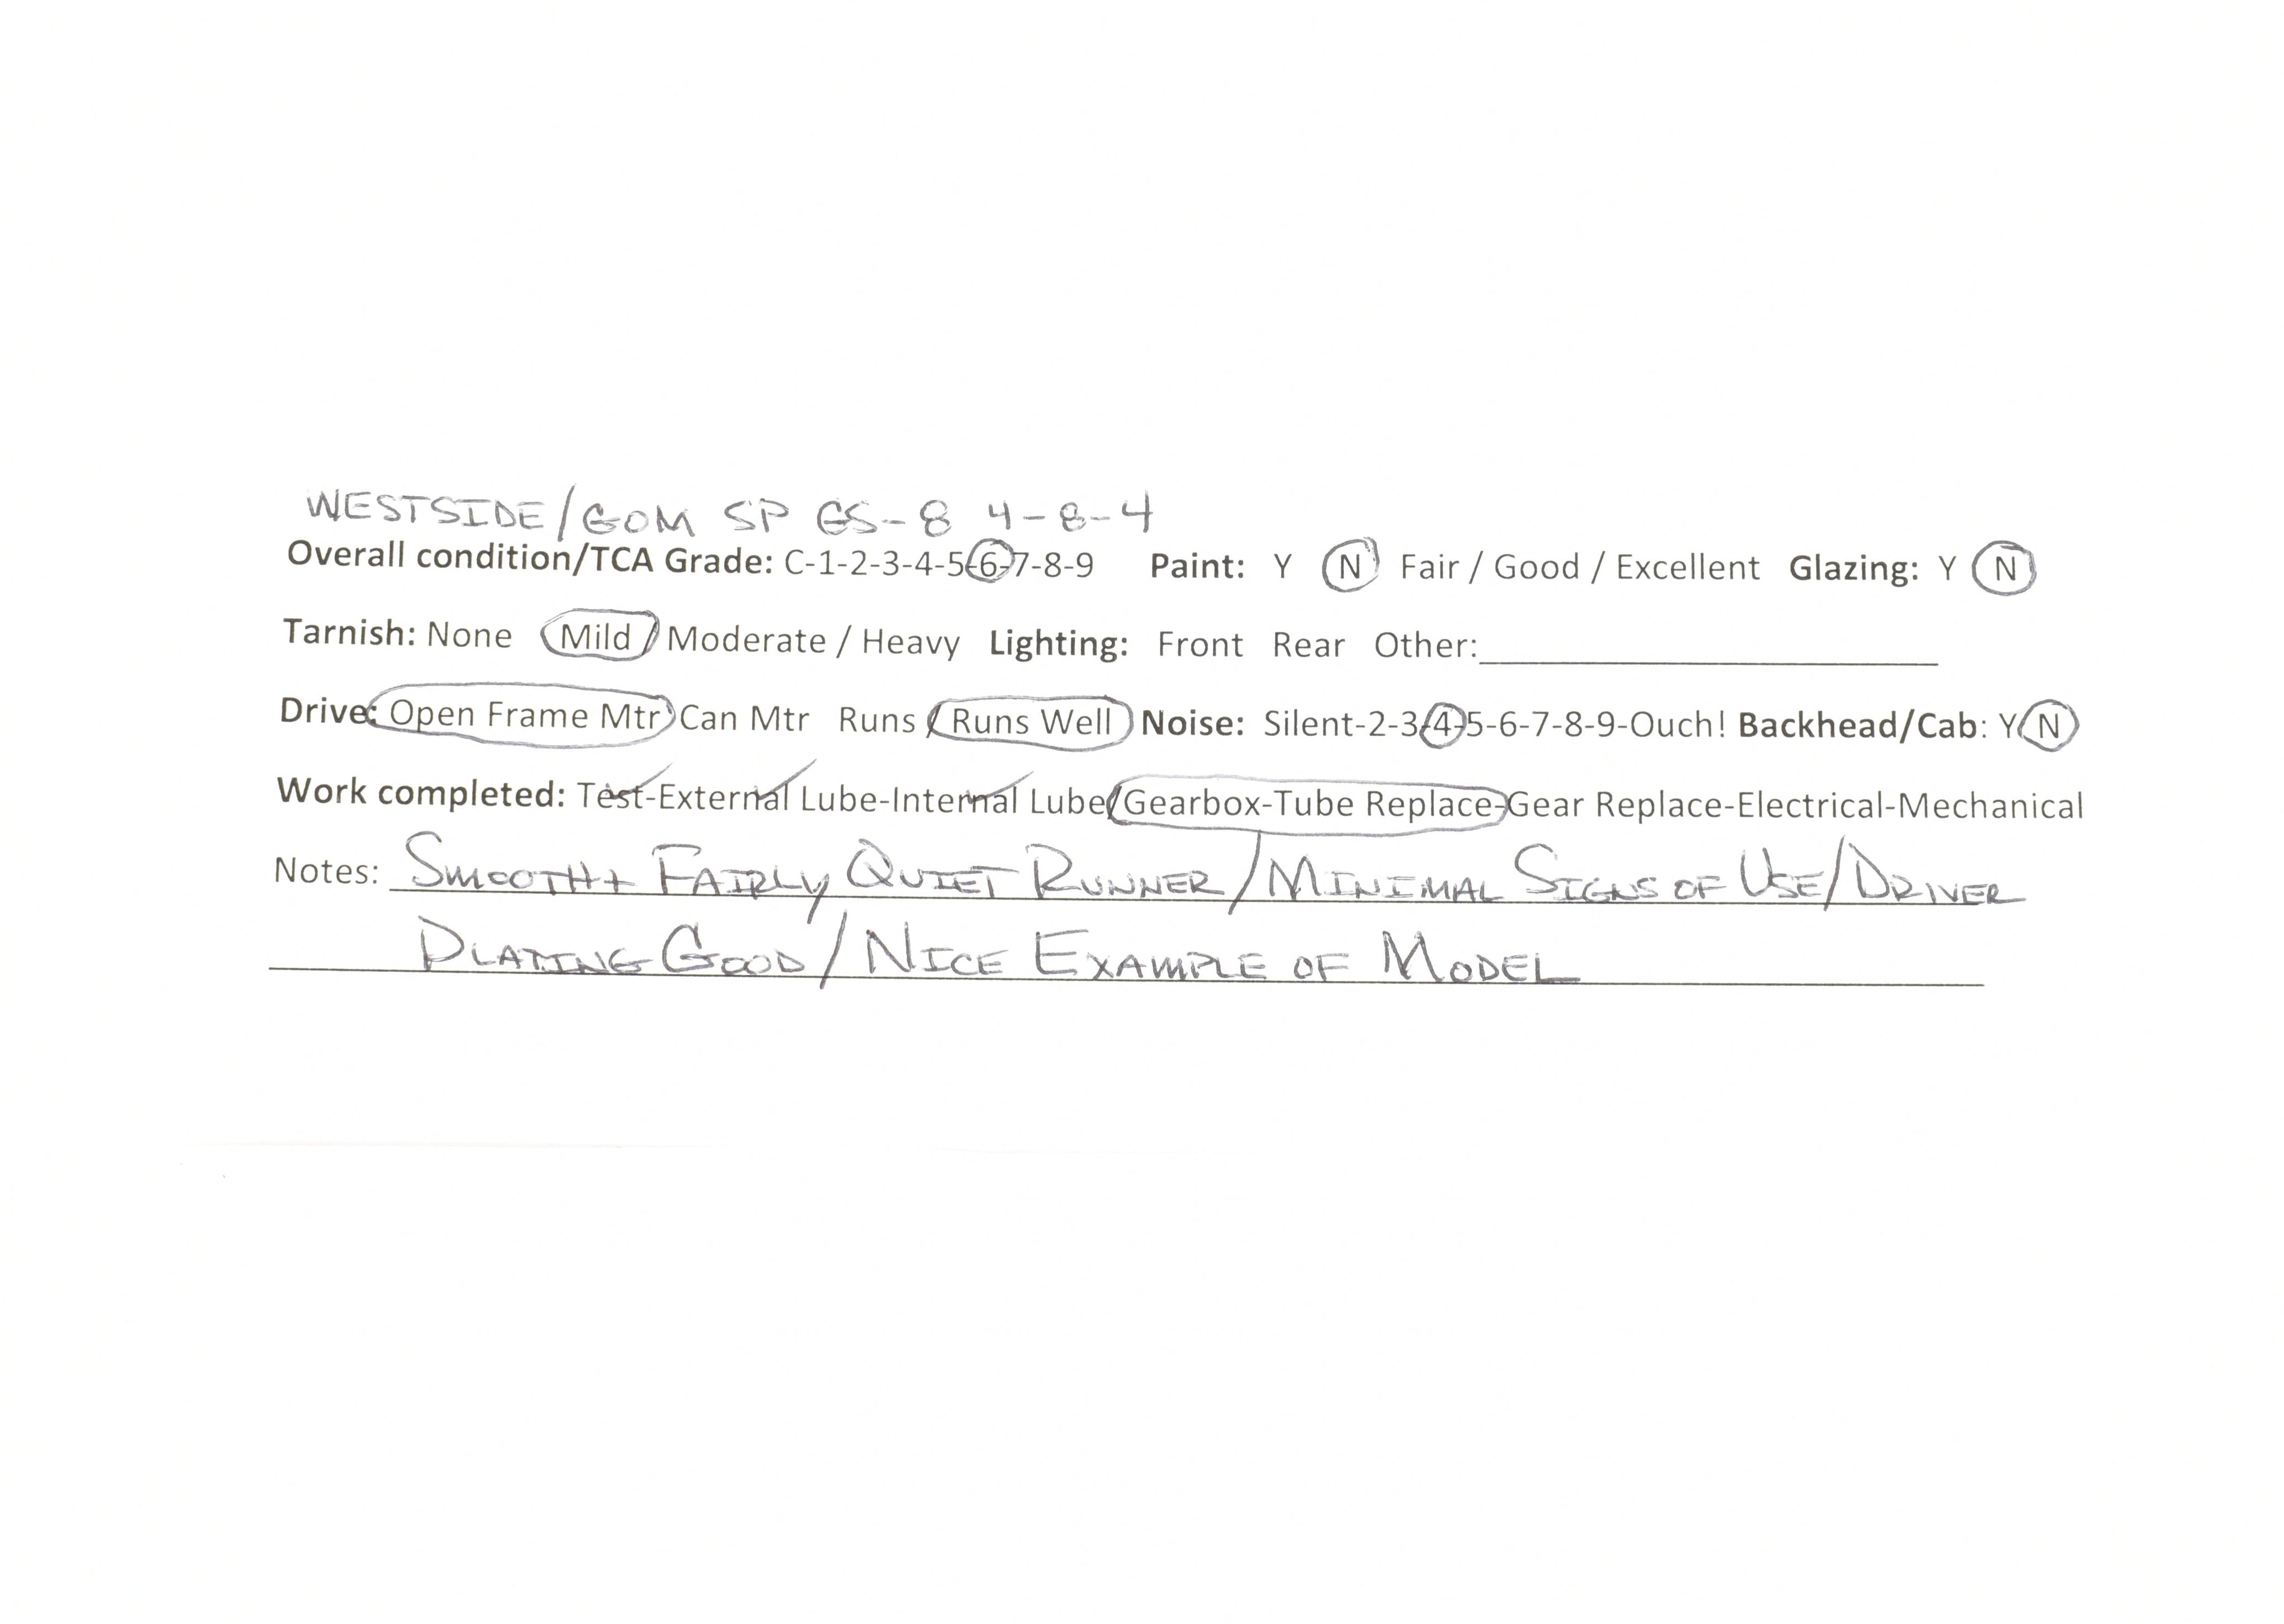 WESTSIDE/GOM SP GS-8 4-8-4
Overall condition/TCA Grade: C-1-2-3-4-5-6-7-8-9 Paint: Y N Fair / Good / Excellent Glazing: Y N
Tarnish: None Mild / Moderate / Heavy Lighting: Front Rear Other:
Drive: Open Frame Mtr Can Mtr Runs / Runs Well Noise: Silent-2-3-4-5-6-7-8-9-Ouch! Backhead/Cab: Y N
Work completed: Test-External Lube-Internal Lube/Gearbox-Tube Replace-Gear Replace-Electrical-Mechanical
Notes: SMOOTH + FAIRLY QUIET RUNNER/MINIMAL SIGNS OF USE/DRIVER
PLATING GOOD/NICE EXAMPLE OF MODEL